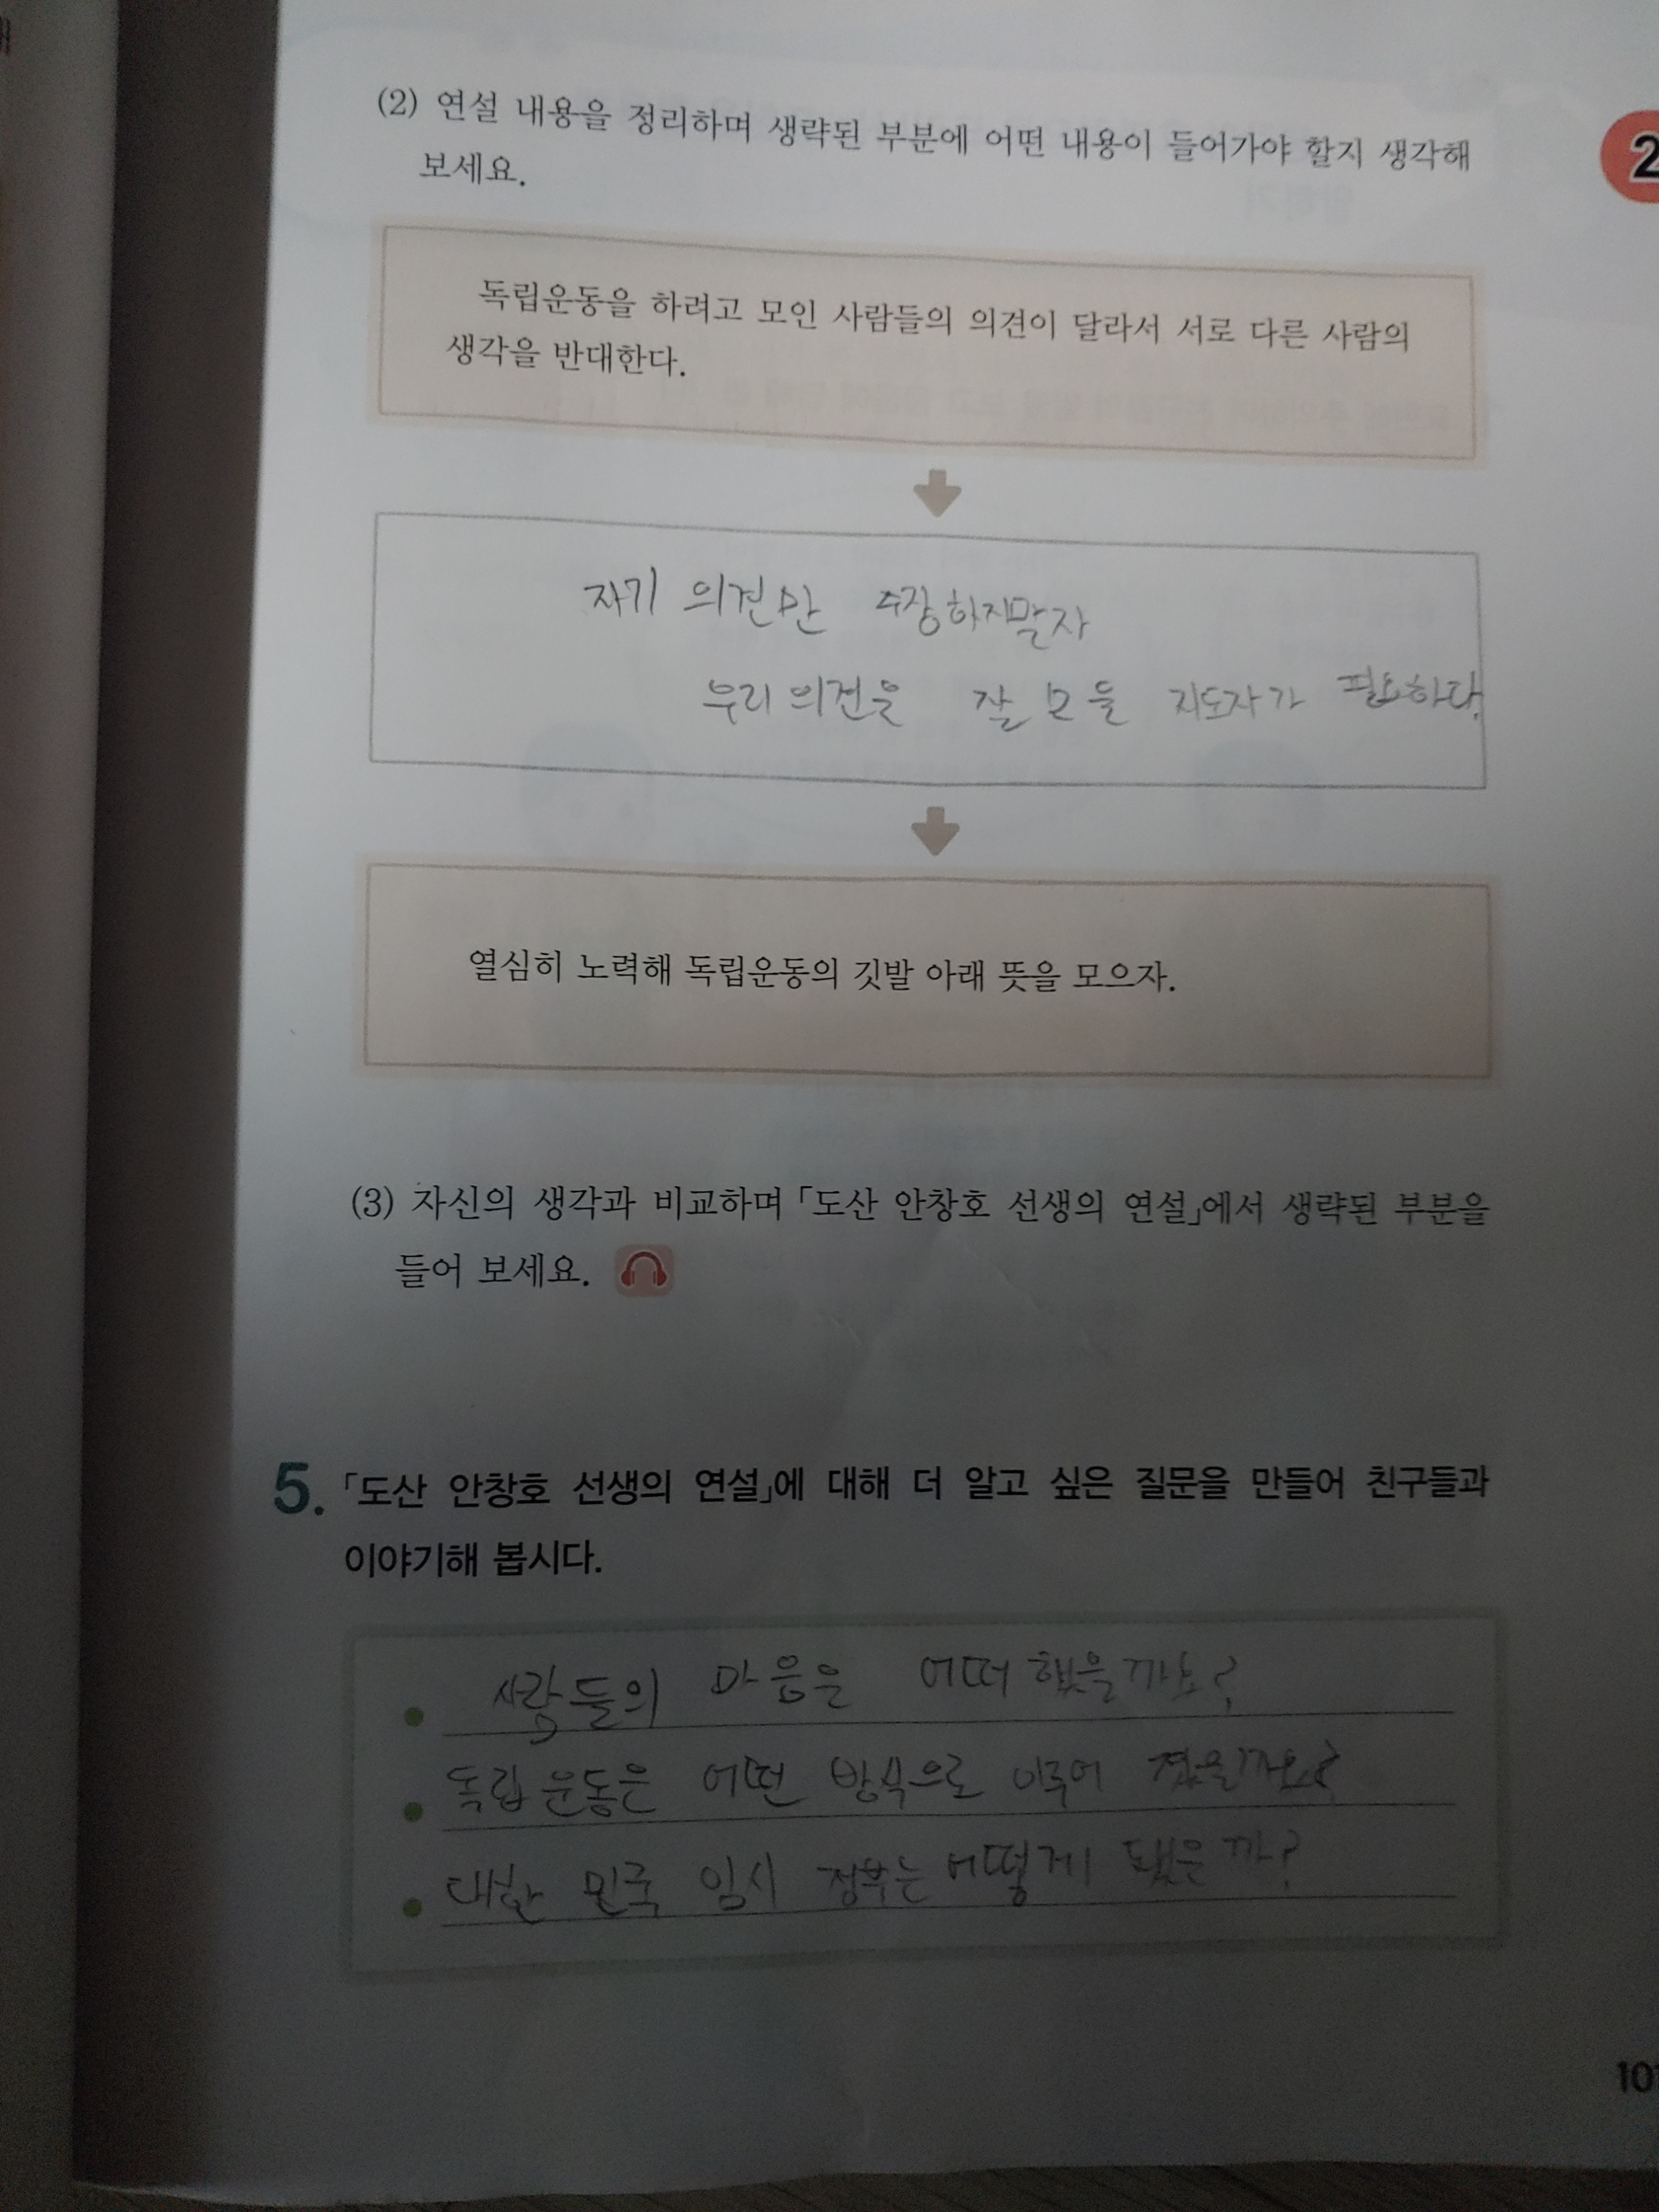 (2) 연설 내용을 정리하며 생략된 부분에 어떤 내용이 들어가야 할지 생각해
보세요.
2
독립운동을 하려고 모인 사람들의 의견이 달라서 서로 다른 사람의
생각을 반대한다.
자기 의견만 주장하지말자
우리 의견을 잘 모을 지도자가 필요하다.
열심히 노력해 독립운동의 깃발 아래 뜻을 모으자.
(3) 자신의 생각과 비교하며 「도산 안창호 선생의 연설」에서 생략된 부분을
들어 보세요.
5. 「도산 안창호 선생의 연설」에 대해 더 알고 싶은 질문을 만들어 친구들과
이야기해 봅시다.
사람들의 마음은 어떠 했을까요?
독립 운동은 어떤 방식으로 이루어 졌을까요?
대한 민국 임시 정부는 어떻게 됐은까?